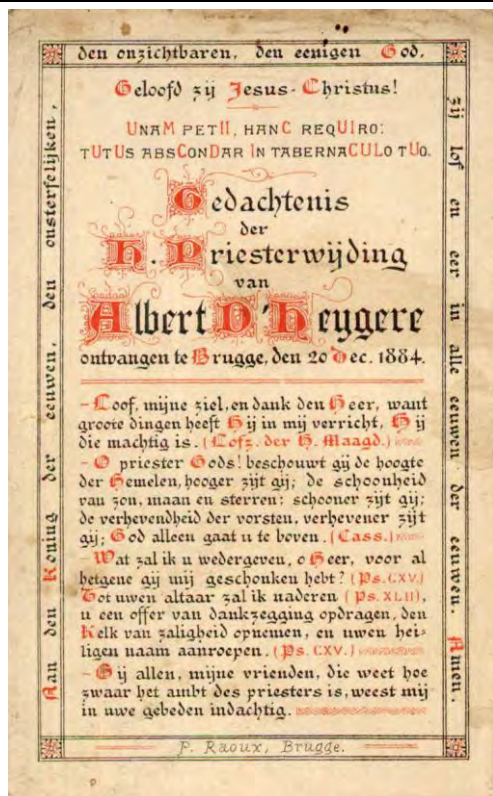 Aan den Koning der eeuwen, den onsterfelijken,
den onzichtbaren, den eenigen God,
zij lof en eer in alle eeuwen der eeuwen. Amen.
Geloofd zij Jesus-Christus!
UNAM PETII, HANC REQUIRO:
TUTUS ABSCONDAR IN TABERNACULO TUO.
Gedachtenis
der
H. Priesterwijding
van
Albert D'Heygere
ontvangen te Brugge, den 20 Dec. 1884.
- Loof, mijne ziel, en dank den Heer, want
groote dingen heeft Hij in mij verricht, Hij
die machtig is. (Lofz. der H. Maagd.)
- O priester Gods! beschouwt gij de hoogte
der Hemelen, hooger zijt gij; de schoonheid
van zon, maan en sterren: schooner zijt gij;
de verhevendheid der vorsten, verhevener zijt
gij; God alleen gaat u te boven. (Cass.)
Wat zal ik u wedergeven, o Heer, voor al
hetgene gij mij geschonken hebt? (Ps. CXV.)
Tot uwen altaar zal ik naderen (Ps. XLII),
u een offer van dankzegging opdragen, den
Kelk van zaligheid opnemen, en uwen hei-
ligen naam aanroepen. (Ps. CXV.)
- Gij allen, mijne vrienden, die weet hoe
zwaar het ambt des priesters is, weest mij
in uwe gebeden indachtig.
P. Raoux, Brugge.